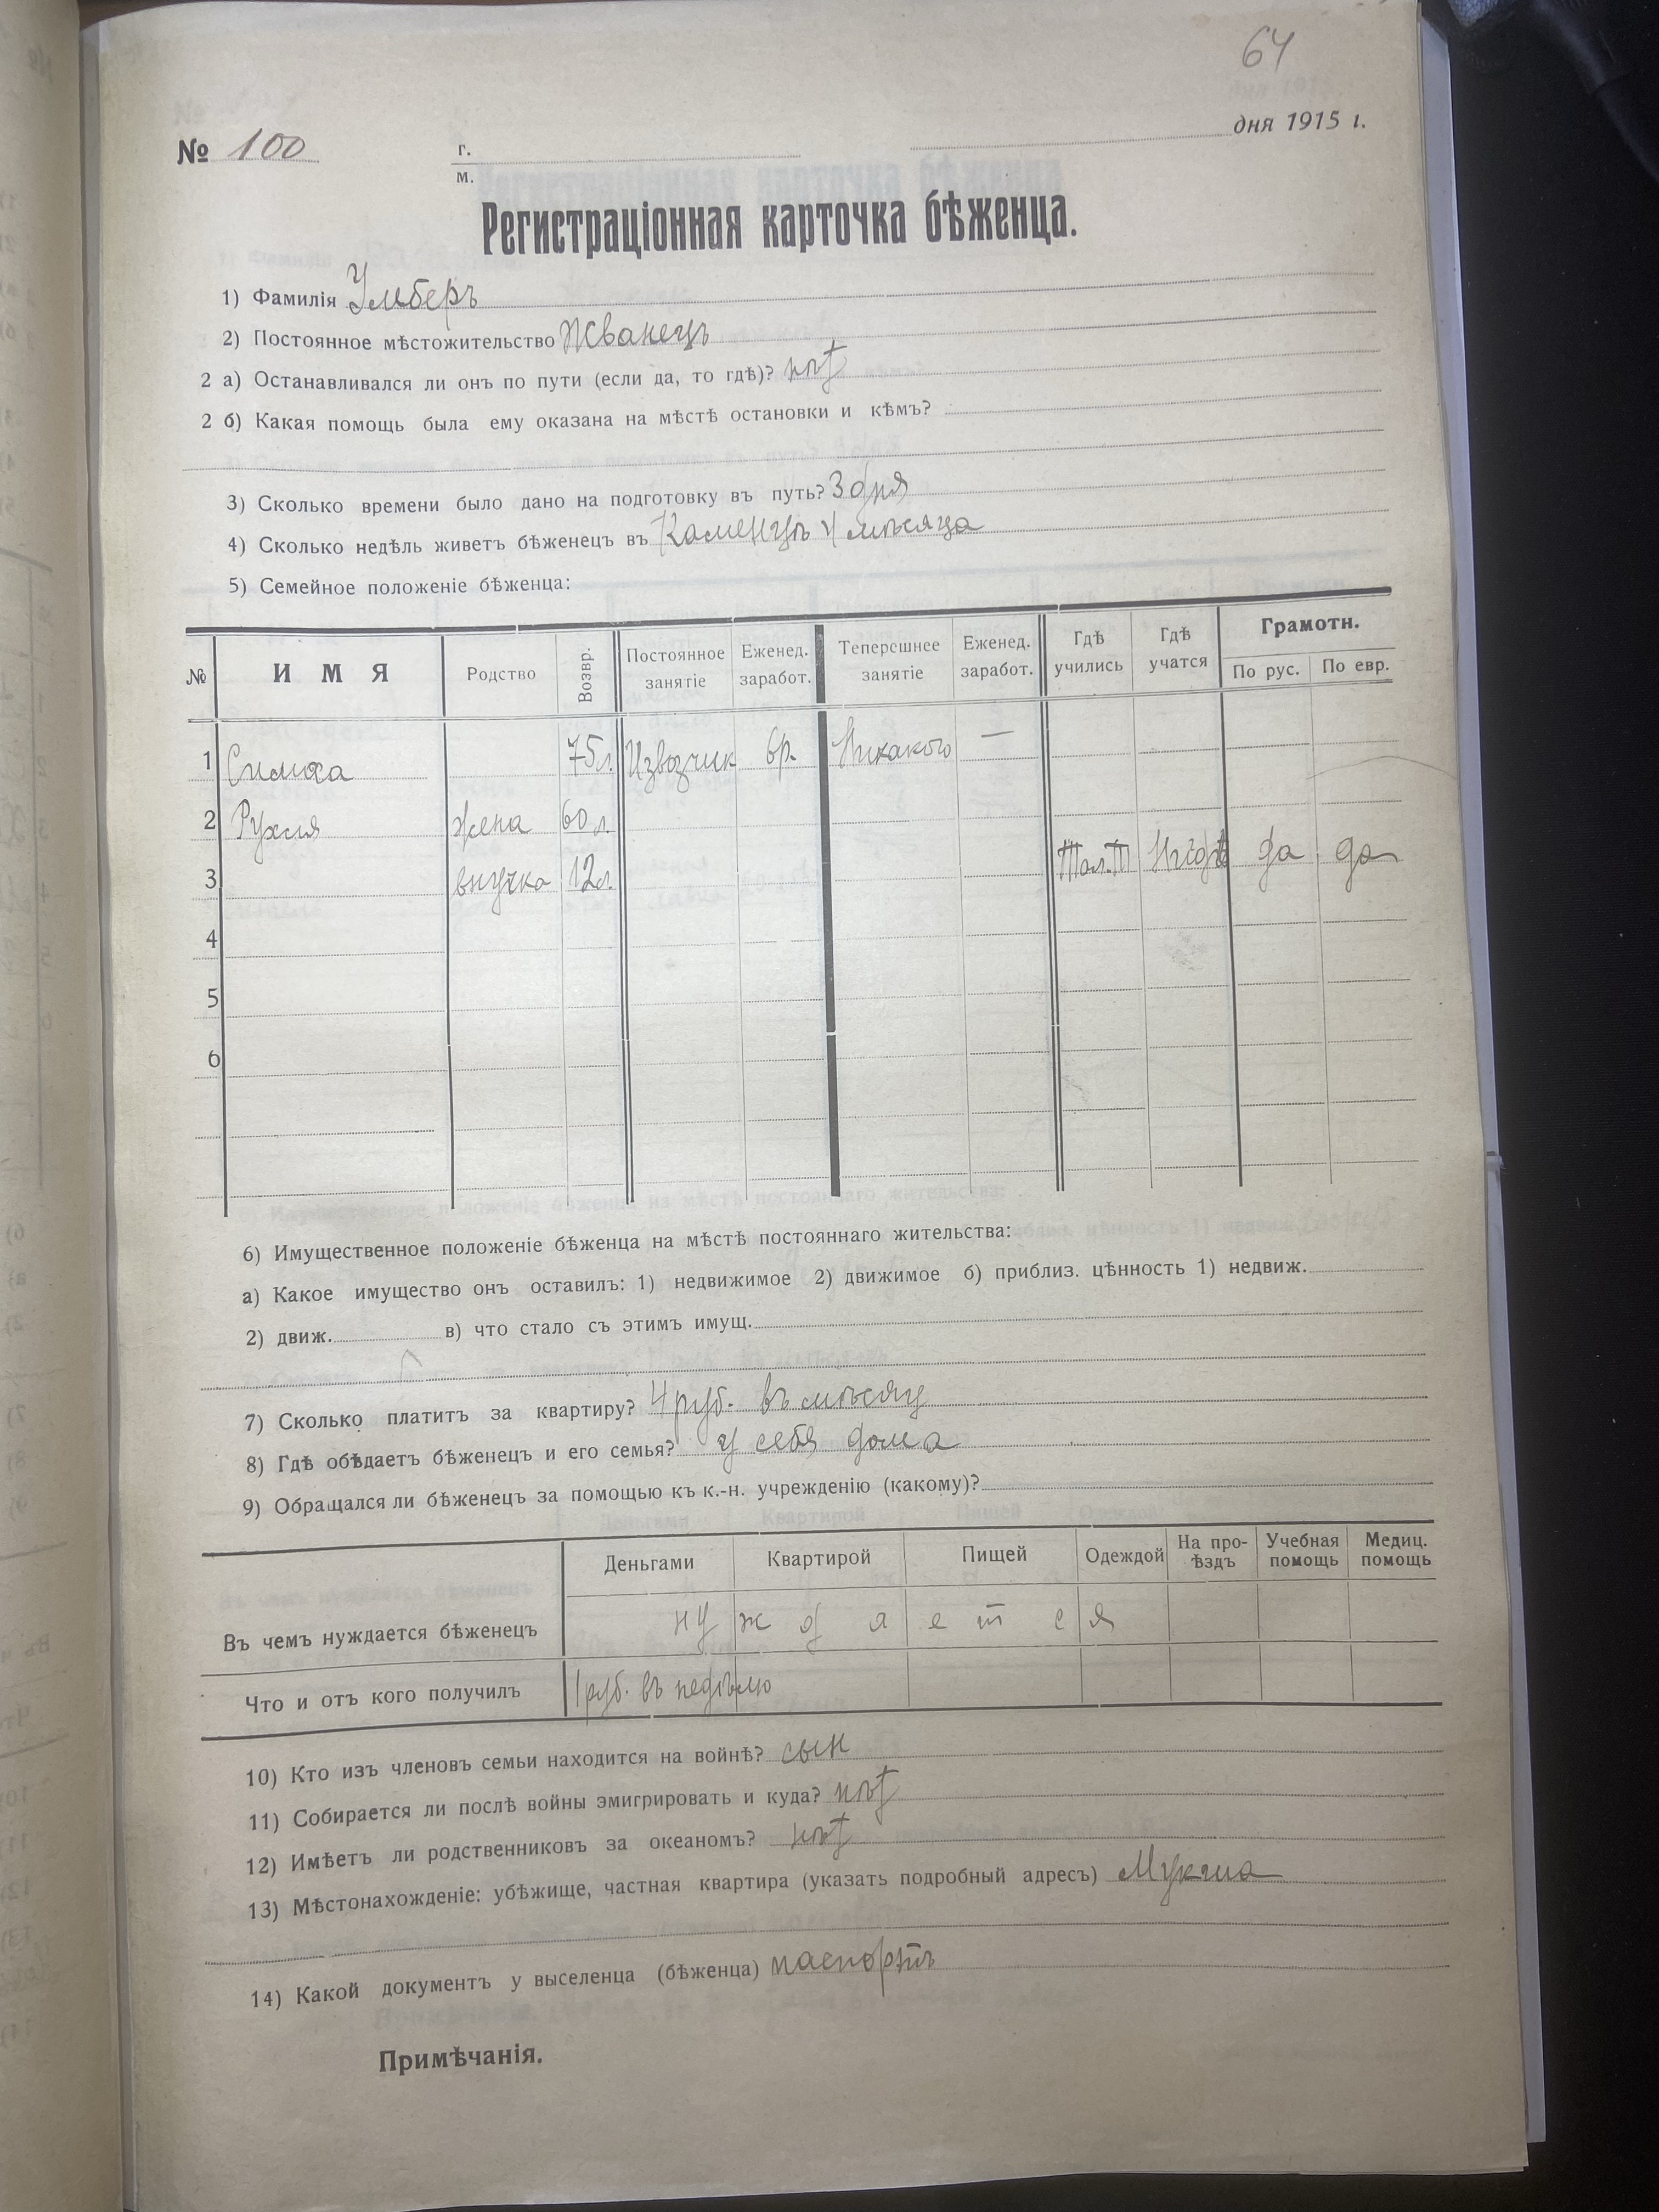 64
№ 100 г. дня 1915 г.
м.
Регистраціонная карточка бѣженца.
1) Фамилія Умберъ
2) Постоянное мѣстожительство Жванецъ
2 а) Останавливался ли онъ по пути (если да, то гдѣ)? нѣт
2 б) Какая помощь была ему оказана на мѣстѣ остановки и кѣмъ?
3) Сколько времени было дано на подготовку въ путь? 3 дня
4) Сколько недѣль живетъ бѣженецъ въ Каменцъ 4 мѣсяца
5) Семейное положеніе бѣженца:
№ ИМЯ Родство Возвр. Постоянное занятіе Еженед. заработ. Теперешнее занятіе Еженед. заработ. Гдѣ учились Гдѣ учатся Грамотн. По рус. По евр.
1 Симха 75 л. Извозчик 6 р. Никакого —
2 Рухля жена 60 л.
3 внучка 12 л. Тал. Т Нигдѣ да да
4
5
6
6) Имущественное положеніе бѣженца на мѣстѣ постояннаго жительства:
а) Какое имущество онъ оставилъ: 1) недвижимое 2) движимое б) приблиз. цѣнность 1) недвиж.
2) движ. в) что стало съ этимъ имущ.
7) Сколько платитъ за квартиру? 4 руб. въ мѣсяц
8) Гдѣ обѣдаетъ бѣженецъ и его семья? у себя дома
9) Обращался ли бѣженецъ за помощью къ к.-н. учрежденію (какому)?
Деньгами Квартирой Пищей Одеждой На про-ѣздъ Учебная помощь Медиц. помощь
Въ чемъ нуждается бѣженецъ нуждается
Что и отъ кого получилъ 1 руб. въ недѣлю
10) Кто изъ членовъ семьи находится на войнѣ? сын
11) Собирается ли послѣ войны эмигрировать и куда? нѣт
12) Имѣетъ ли родственниковъ за океаномъ? нѣт
13) Мѣстонахожденіе: убѣжище, частная квартира (указать подробный адресъ) Мукша
14) Какой документъ у выселенца (бѣженца) паспортъ
Примѣчанія.